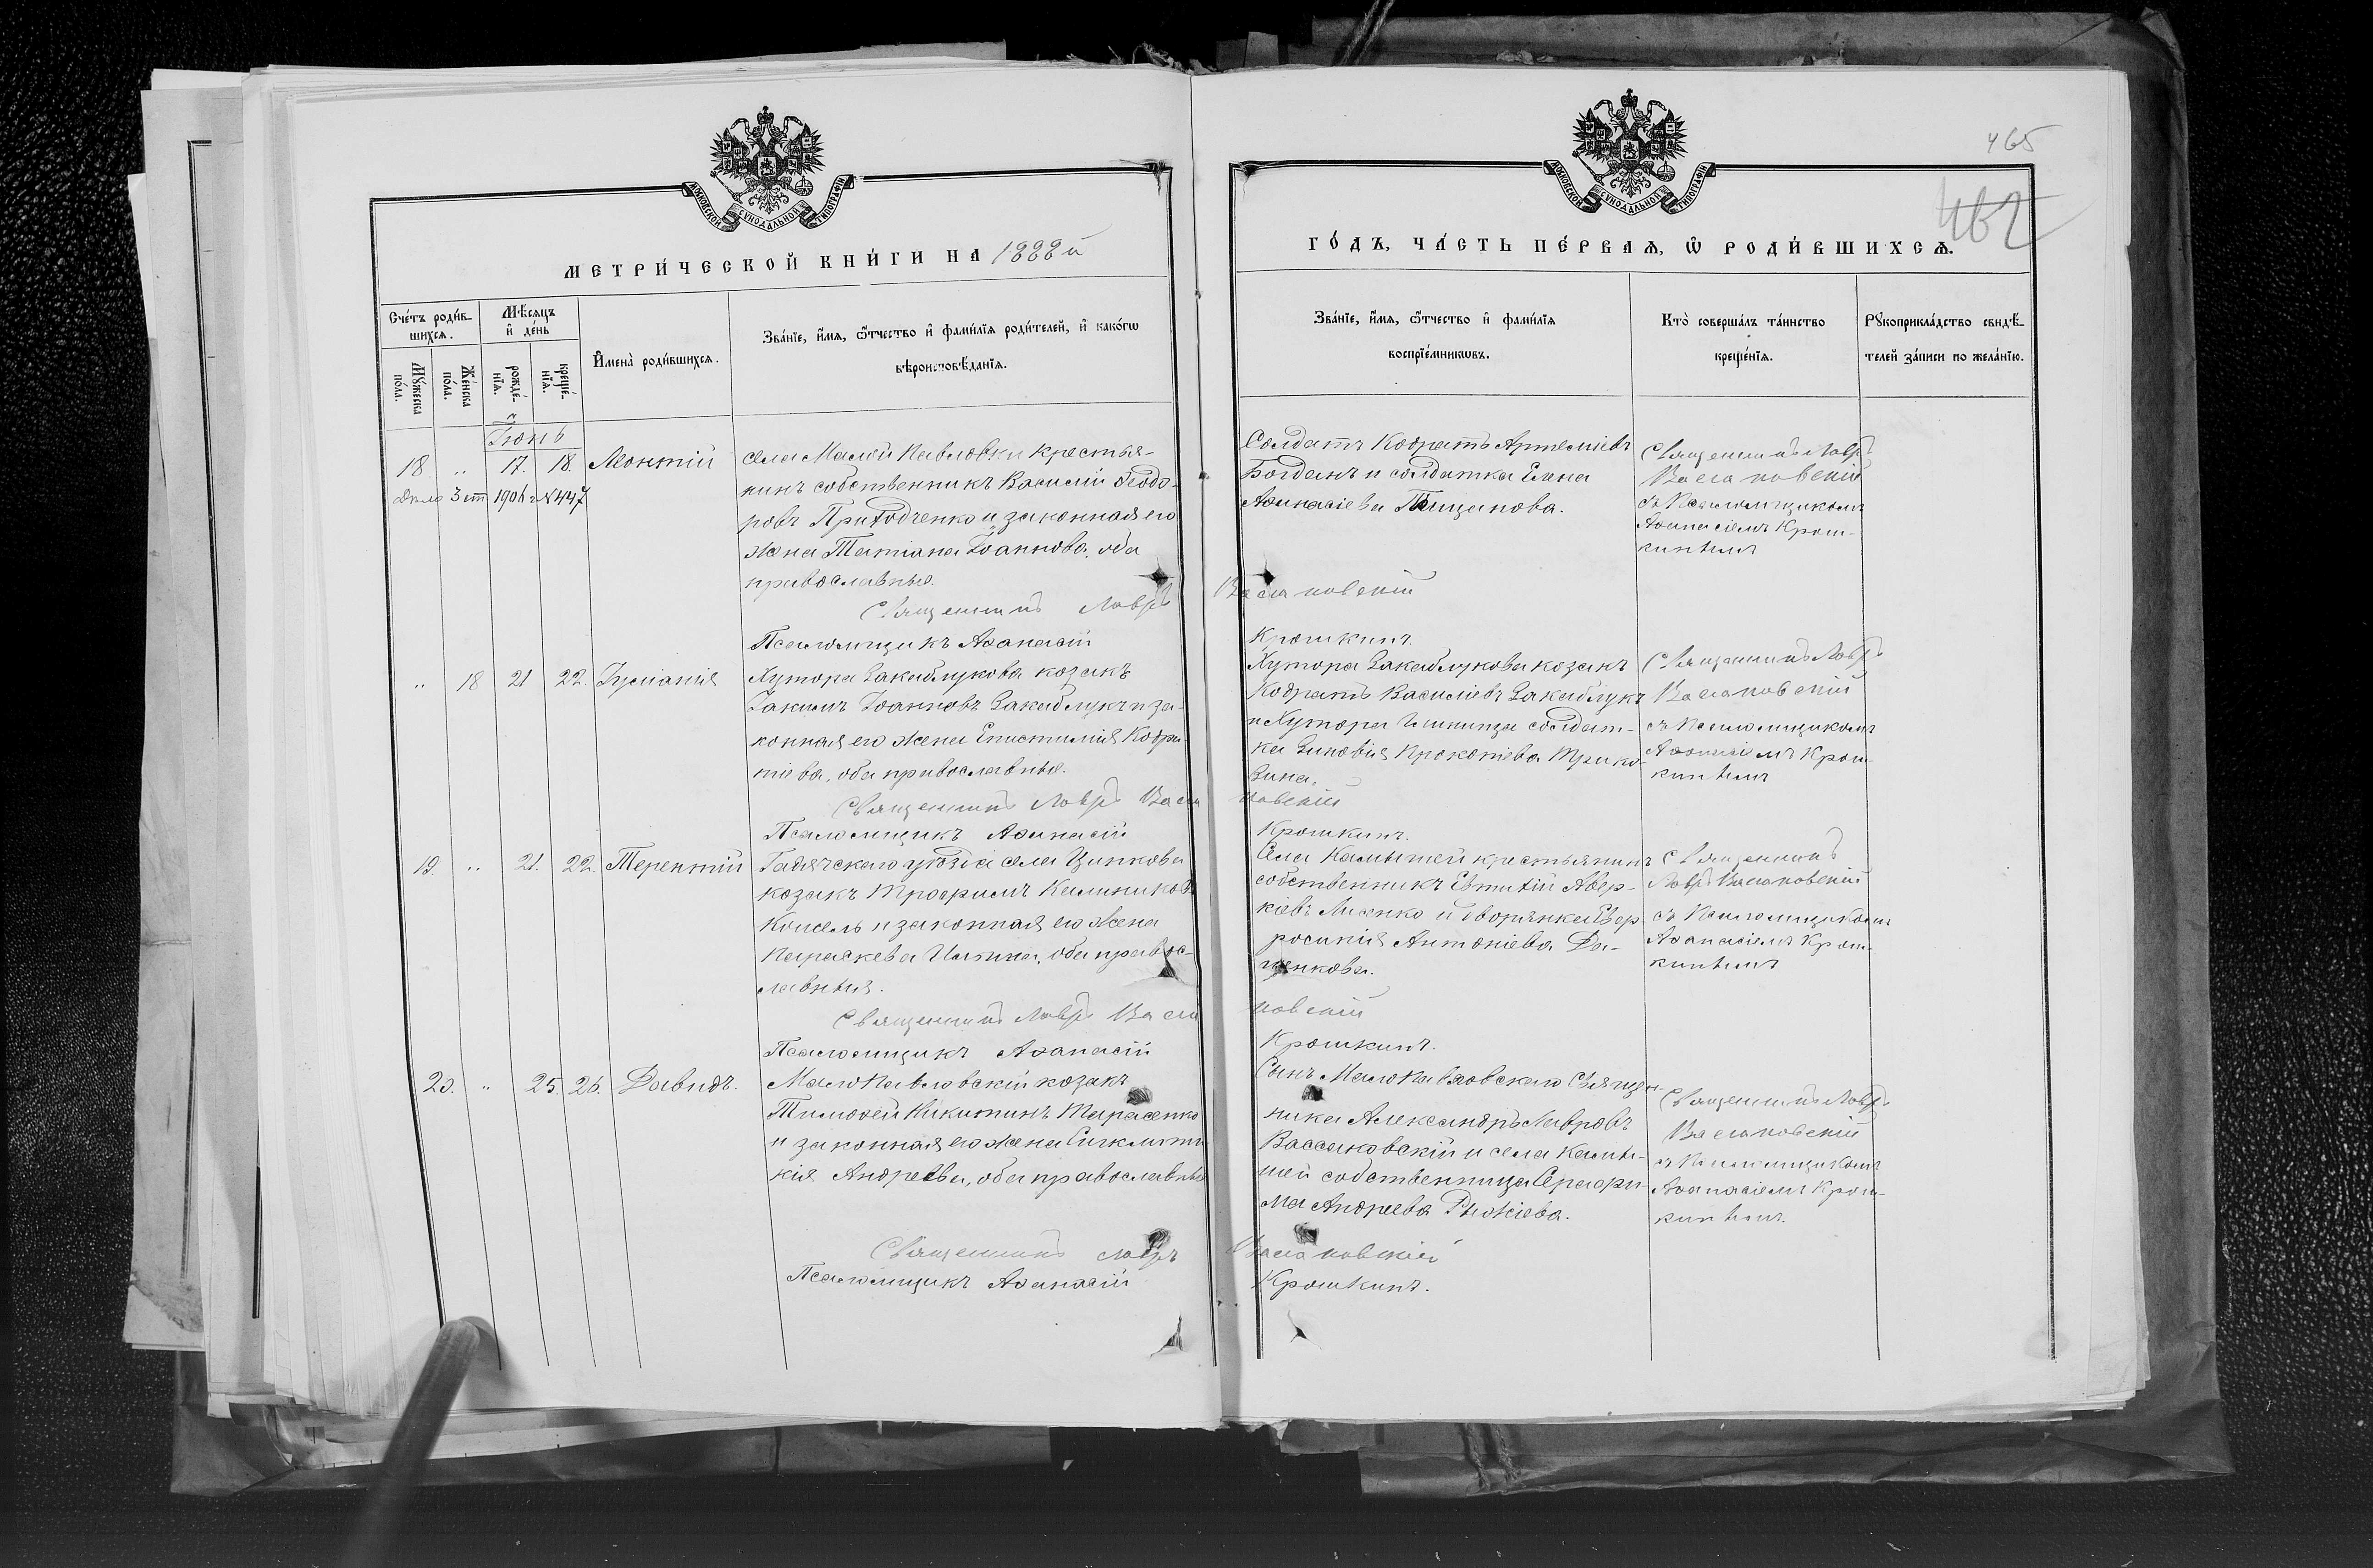 МОСКОВСКОЙ СУНОДАЛЬНОЙ ТИПОГРАФІИ
МЕТРИ́ЧЕСКОЙ КНИ́ГИ НА 1888 й
Сче́тъ роди́в-
шихсѧ.
Мѣ́сяцъ
и҆ де́нь
Мꙋ́жеска
по́ла.
Же́нска
по́ла.
рожде́-
нїѧ.
креще́-
нїѧ.
И҆мена̀ роди́вшихсѧ.
Зва́нїе, и҆́мѧ, ѻ҆́тчество и҆ фами́лїѧ роди́телей, и҆ како́гѡ
вѣроисповѣ́данїѧ.
Іюнь
18 „ 17. 18. Леонтій
Дѣло 3 ст 1906 г №447
села Малой Павловки крестья-
нинъ собственникъ Василій Ѳеодо-
ровъ Приходченко и законная его
жена Татіана Іоаннова, оба
православные.
Священникъ Лавръ Васлановскій
Псаломщикъ Аѳанасій Крошкинъ.
„ 18 21 22. Іуліанія
Хутора Закаблукова козакъ
Іакимъ Іоанновъ Закаблукъ и за-
конная его жена Епистимія Кодра-
тіева, оба православные.
Священникъ Лавръ Васлановскій
Псаломщикъ Аѳанасій Крошкинъ.
19. „ 21. 22. Терентій
Гадячскаго уѣзда села Ципкова
козакъ Трофимъ Калиниковъ
Кисель и законная его жена
Параскева Ильина, оба правос-
лавныя.
Священникъ Лавръ Васлановскій
Псаломщикъ Аѳанасій Крошкинъ.
20. „ 25. 26. Давидъ.
Малопавловскій козакъ
Тимоѳей Никитинъ Тарасенко
и законная его жена
Андреева, оба православные
Священникъ Лавръ Васлановскій
Псаломщикъ Аѳанасій Крошкинъ.
465
462
МОСКОВСКОЙ СУНОДАЛЬНОЙ ТИПОГРАФІИ
ГО́ДЪ, ЧА́СТЬ ПЕ́РВАѦ, Ѡ҆ РОДИ́ВШИХСѦ.
Зва́нїе, и҆́мѧ, ѻ҆́тчество и҆ фами́лїѧ
воспрїе́мникѡвъ.
Кто̀ соверша́лъ та́инство
креще́нїѧ.
Рꙋкоприкла́дство свидѣ́-
телей за́писи по жела́нїю.
Солдатъ Кодратъ Артеміевъ
Богданъ и солдатка Елена
Аѳанасіева Тищанова.
Священникъ Лавръ
Васлановскій
съ Псаломщикомъ
Аѳанасіемъ Крош-
кинымъ
Хутора Закаблукова козакъ
Кодратъ Василіевъ Закаблукъ
и Хутора солдат-
ка Зиновія Прокопіева Трико-
зина.
Священникъ Лавръ
Васлановскій
съ Псаломщикомъ
Аѳанасіемъ Крош-
кинымъ
Села Камышей крестьянинъ
собственникъ Евтихій Авер-
кіевъ Лисенко и дворянка Евф-
росинія Антоніева Да-
ценкова.
Священникъ
Лавръ Васлановскій
съ Псаломщикомъ
Аѳанасіемъ Крош-
кинымъ
Сынъ Малопавловскаго Священ-
ника Александръ Лавровъ
Вассаковскій и села Камы-
шей собственница Серафи-
ма Андреева Рыжіева.
Священникъ Лавръ
Васлановскій
съ Псаломщикомъ
Аѳанасіемъ Крош-
кинымъ.